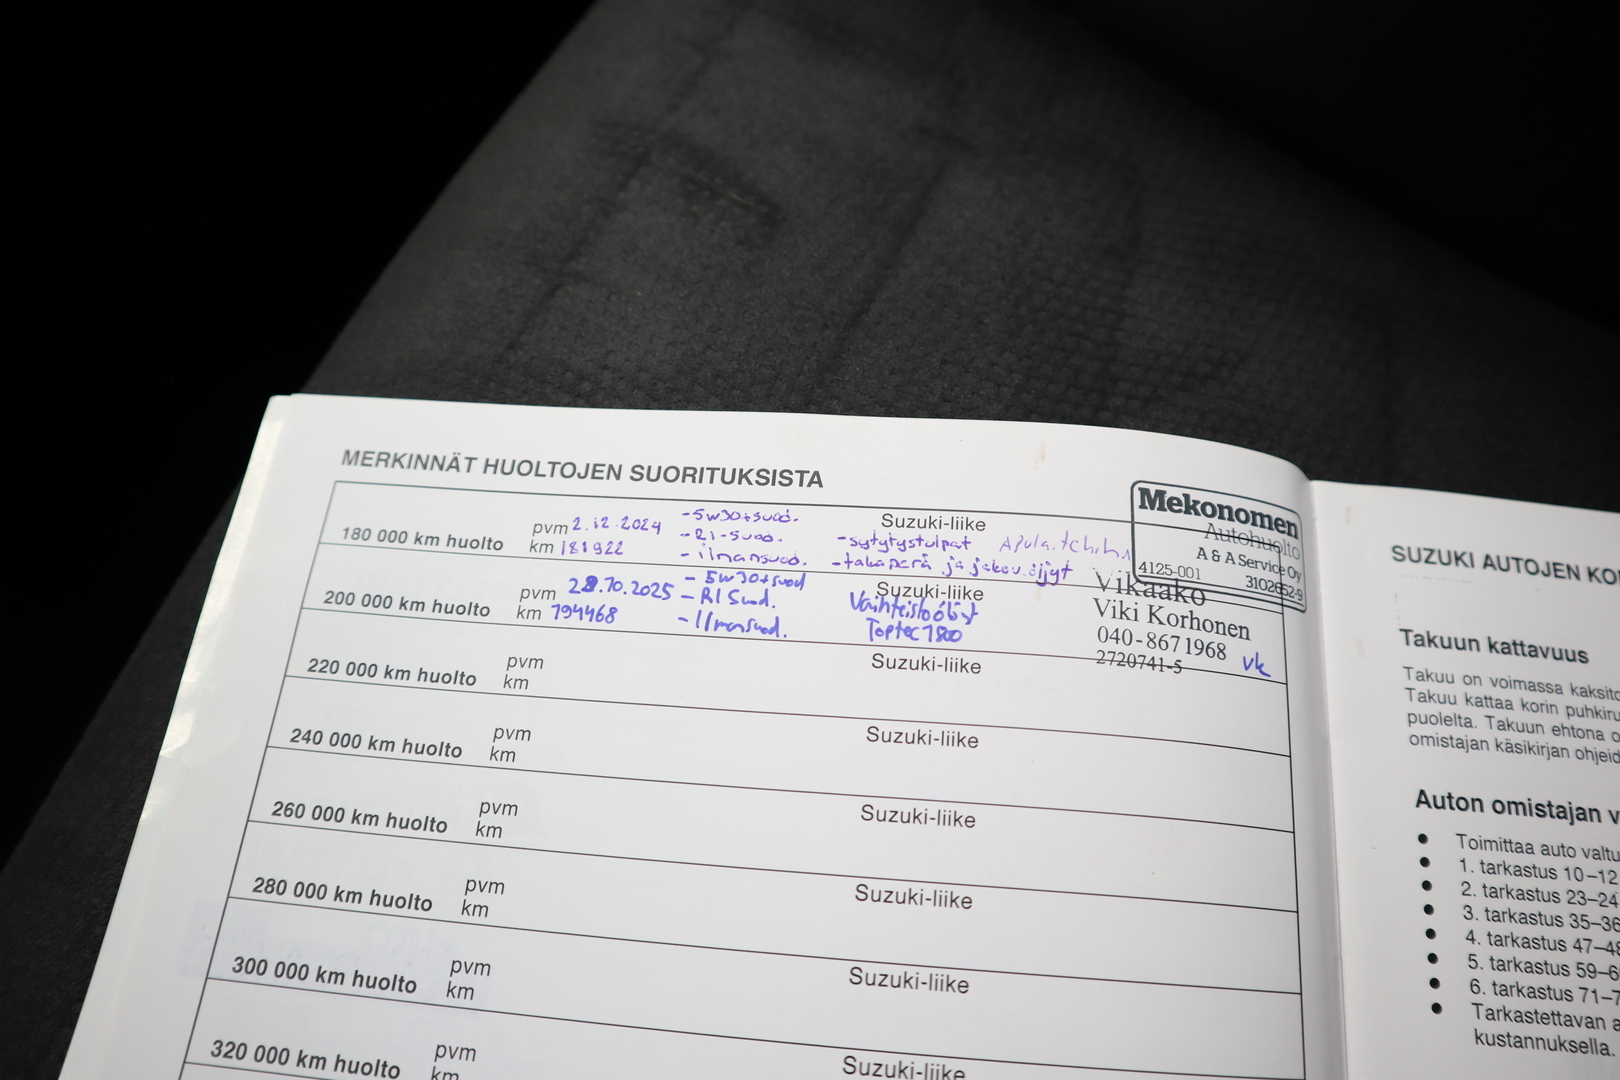 MERKINNÄT HUOLTOJEN SUORITUKSISTA
180 000 km huolto
pvm 2.12.2024
km 181922
-5w30+suod.
-RI-suod.
-ilmansuod.
Suzuki-liike
-sytytystulpat
-takaperä ja jakov.öljyt
Mekonomen
Autohuolto
A & A Service Oy
4125-001 3102652-9
200 000 km huolto
pvm 28.10.2025
km 194468
- 5w30+suod
- RI Suod.
- Ilmansuod.
Suzuki-liike
Vaihteistoöljyt
Toptec 1800
Vikaako
Viki Korhonen
040-8671968
2720741-5
vk
220 000 km huolto
pvm
km
Suzuki-liike
240 000 km huolto
pvm
km
Suzuki-liike
260 000 km huolto
pvm
km
Suzuki-liike
280 000 km huolto
pvm
km
Suzuki-liike
300 000 km huolto
pvm
km
Suzuki-liike
320 000 km huolto
pvm
km
Suzuki-liike
SUZUKI AUTOJEN KO
Takuun kattavuus
Takuu on voimassa kaksito
Takuu kattaa korin puhkiru
puolelta. Takuun ehtona o
omistajan käsikirjan ohjeid
Auton omistajan v
● Toimittaa auto valtu
● 1. tarkastus 10–12
● 2. tarkastus 23–24
● 3. tarkastus 35–36
● 4. tarkastus 47–48
● 5. tarkastus 59–6
● 6. tarkastus 71–7
● Tarkastettavan a
kustannuksella.